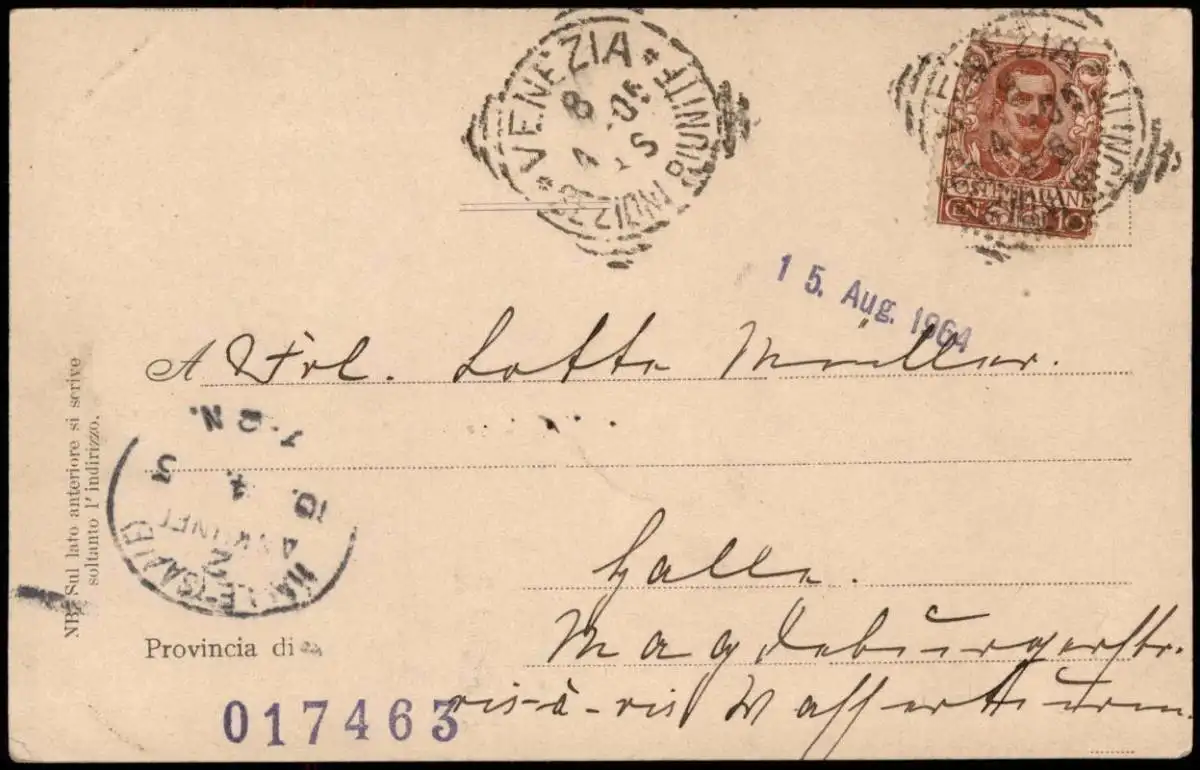 VENEZIA * PUNITI INDIZZ *
8
4 05
1 S
VENEZIA
POSTE ITALIANE
CENT. 10
15. Aug. 1964
A Frl. Lotte Müller.
Halle.
Magdeburgerstr.
vis-à-vis Wasserthurm
NB. Sul lato anteriore si scrive
soltanto l' indirizzo.
HALLE (SAALE)
2
10. 4. 5
7-8 N.
Provincia di
017463